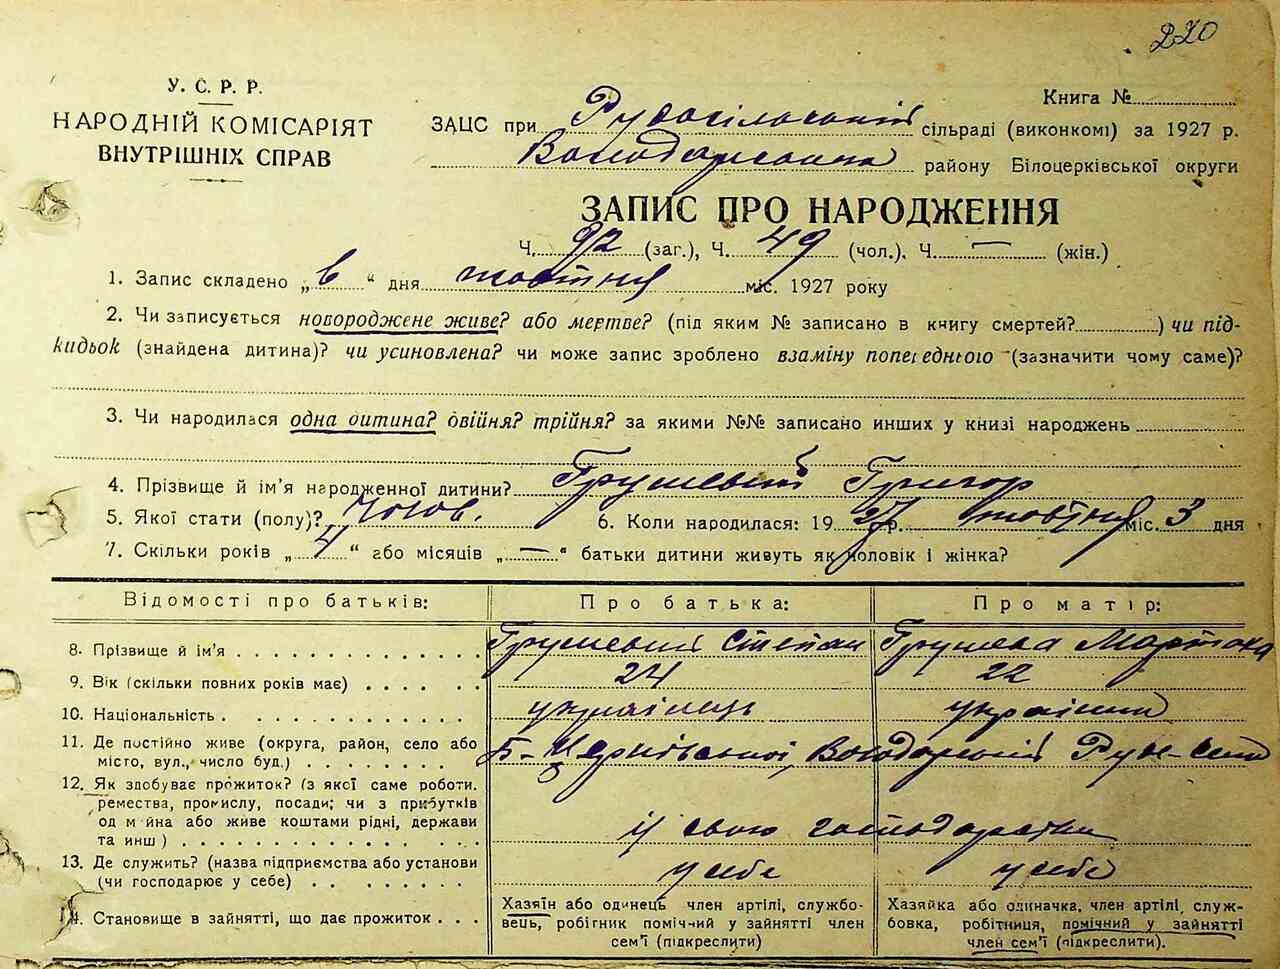 270
У. С. Р. Р.
НАРОДНІЙ КОМІСАРІЯТ
ВНУТРІШНІХ СПРАВ
Книга №
ЗАЦС при Рудосільський сільраді (виконкомі) за 1927 р.
Володарського району Білоцерківської округи
ЗАПИС ПРО НАРОДЖЕННЯ
Ч. 92 (заг.), Ч. 49 (чол.), Ч. — (жін.)
1. Запис складено „ 6 “ дня жовтня міс. 1927 року
2. Чи записується новороджене живе? або мертве? (під яким № записано в книгу смертей?) чи під-
кидьок (знайдена дитина)? чи усиновлена? чи може запис зроблено взаміну попереднього (зазначити чому саме)?
3. Чи народилася одна дитина? двійня? трійня? за якими №№ записано инших у книзі народжень
4. Прізвище й ім'я народженної дитини? Грушевий Григор
5. Якої стати (полу)? Чолов. 6. Коли народилася: 1927 р. жовтня міс. 3 дня
7. Скільки років „ 4 “ або місяців „ — “ батьки дитини живуть як чоловік і жінка?
Відомості про батьків: Про батька: Про матір:
8. Прізвище й ім'я Грушевий Степан Грушева
9. Вік (скільки повних років має) 24 22
10. Національність українець українка
11. Де постійно живе (округа, район, село або
місто, вул., число буд.) Б-Церківської, Володарський Руде-Село
12. Як здобуває прожиток? (з якої саме роботи.
ремества, промислу, посади; чи з прибутків
од майна або живе коштами рідні, держави
та инш) із свою господарства
13. Де служить? (назва підприємства або установи
(чи господарює у себе) у себе у себе
14. Становище в зайнятті, що дає прожиток
Хазяїн або одинець член артілі, службо-
вець, робітник помічний у зайнятті член
сем'ї (підкреслити)
Хазяйка або одиначка, член артілі, служ-
бовка, робітниця, помічний у зайнятті
член сем'ї (підкреслити).